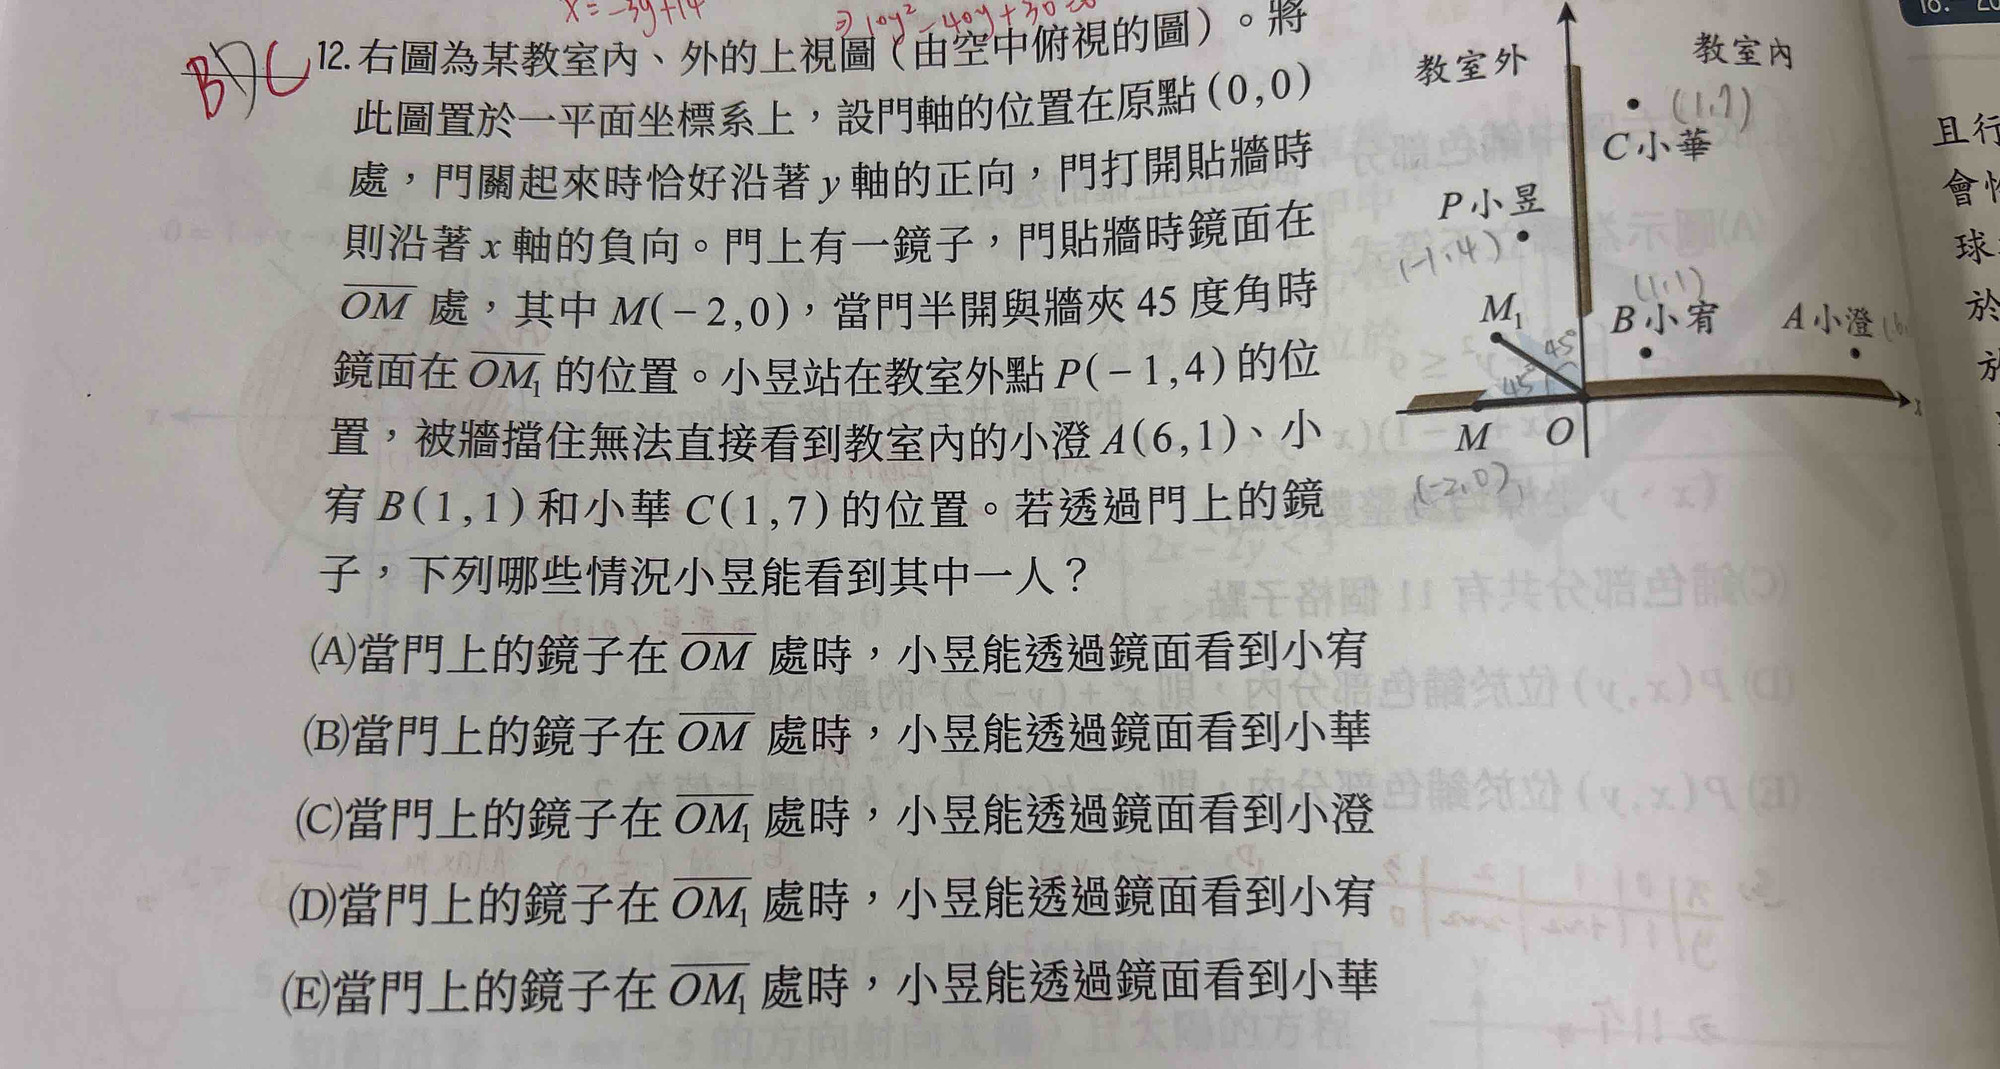 x=-3y+14
⇒10y²-40y+30=0
B D C
12.右圖為某教室內、外的上視圖(由空中俯視的圖)。將
此圖置於一平面坐標系上,設門軸的位置在原點(0,0)
處,門關起來時恰好沿著y軸的正向,門打開貼牆時
則沿著x軸的負向。門上有一鏡子,門貼牆時鏡面在
OM處,其中M(-2,0),當門半開與牆夾45度角時
鏡面在OM₁的位置。小昱站在教室外點P(-1,4)的位
置,被牆擋住無法直接看到教室內的小澄A(6,1)、小
宥B(1,1)和小華C(1,7)的位置。若透過門上的鏡
子,下列哪些情況小昱能看到其中一人?
(A)當門上的鏡子在OM處時,小昱能透過鏡面看到小宥
(B)當門上的鏡子在OM處時,小昱能透過鏡面看到小華
(C)當門上的鏡子在OM₁處時,小昱能透過鏡面看到小澄
(D)當門上的鏡子在OM₁處時,小昱能透過鏡面看到小宥
(E)當門上的鏡子在OM₁處時,小昱能透過鏡面看到小華
教室外
教室內
(1,7)
C小華
P小昱
(-1,4)
(1,1)
M₁
B小宥
A小澄
45°
45°
x
M
O
(-2,0)
且行
會
球
於
於